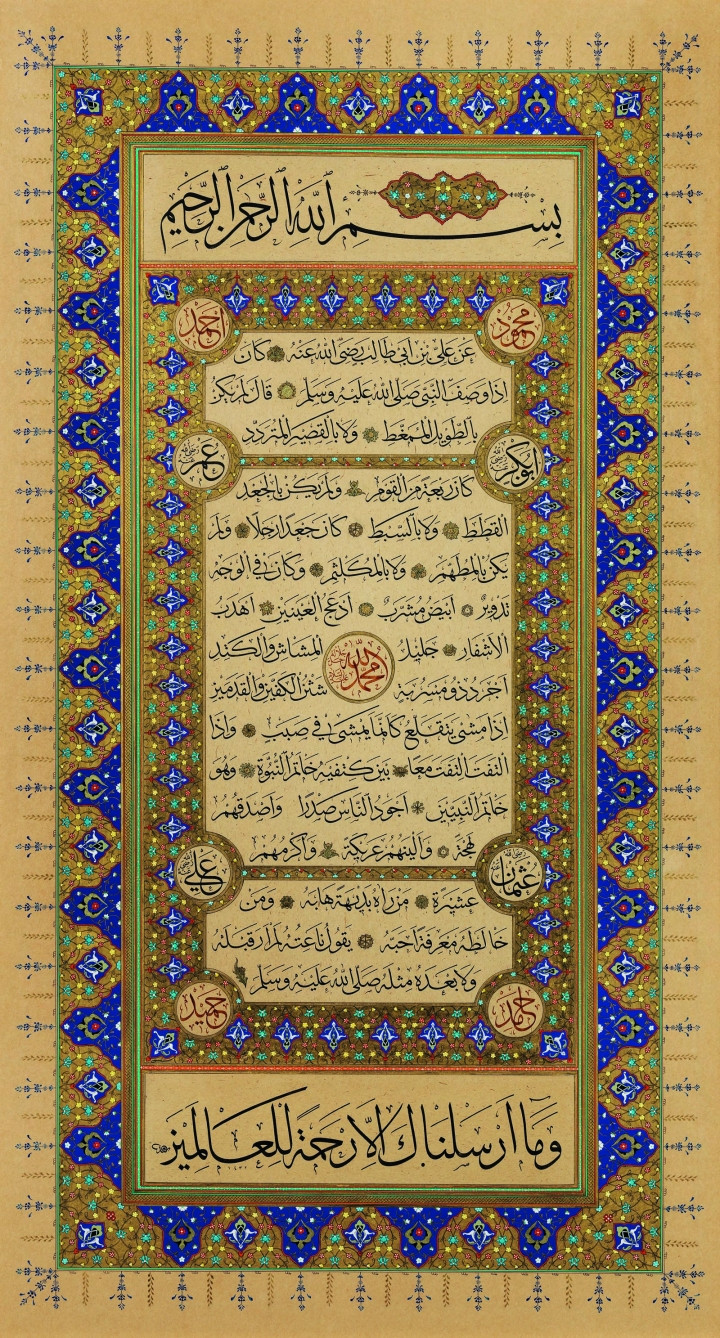 بسم الله الرحمن الرحيم
محمود
احمد
عن علي بن ابي طالب رضي الله عنه كان
اذا وصف النبي صلى الله عليه وسلم قال لم يكن
بالطويل الممغط ولا بالقصير المتردد
ابو بكر
عمر
كان ربعة من القوم ولم يكن بالجعد
القطط ولا بالسبط كان جعدا رجلا ولم
يكن بالمطهم ولا بالمكلثم وكان في الوجه
تدوير ابيض مشرب ادعج العينين اهدب
الاشفار جليل المشاش والكتد
محمد
اجرد ذو مسربة شثن الكفين والقدمين
اذا مشى يتقلع كانما يمشي في صبب واذا
التفت التفت معا بين كتفيه خاتم النبوة وهو
خاتم النبيين اجود الناس صدرا واصدقهم
لهجة والينهم عريكة واكرمهم
عثمان
علي
عشيرة من رآه بديهة هابه ومن
خالطه معرفة احبه يقول ناعته لم ار قبله
ولا بعده مثله صلى الله عليه وسلم
حميد
وما ارسلناك الا رحمة للعالمين